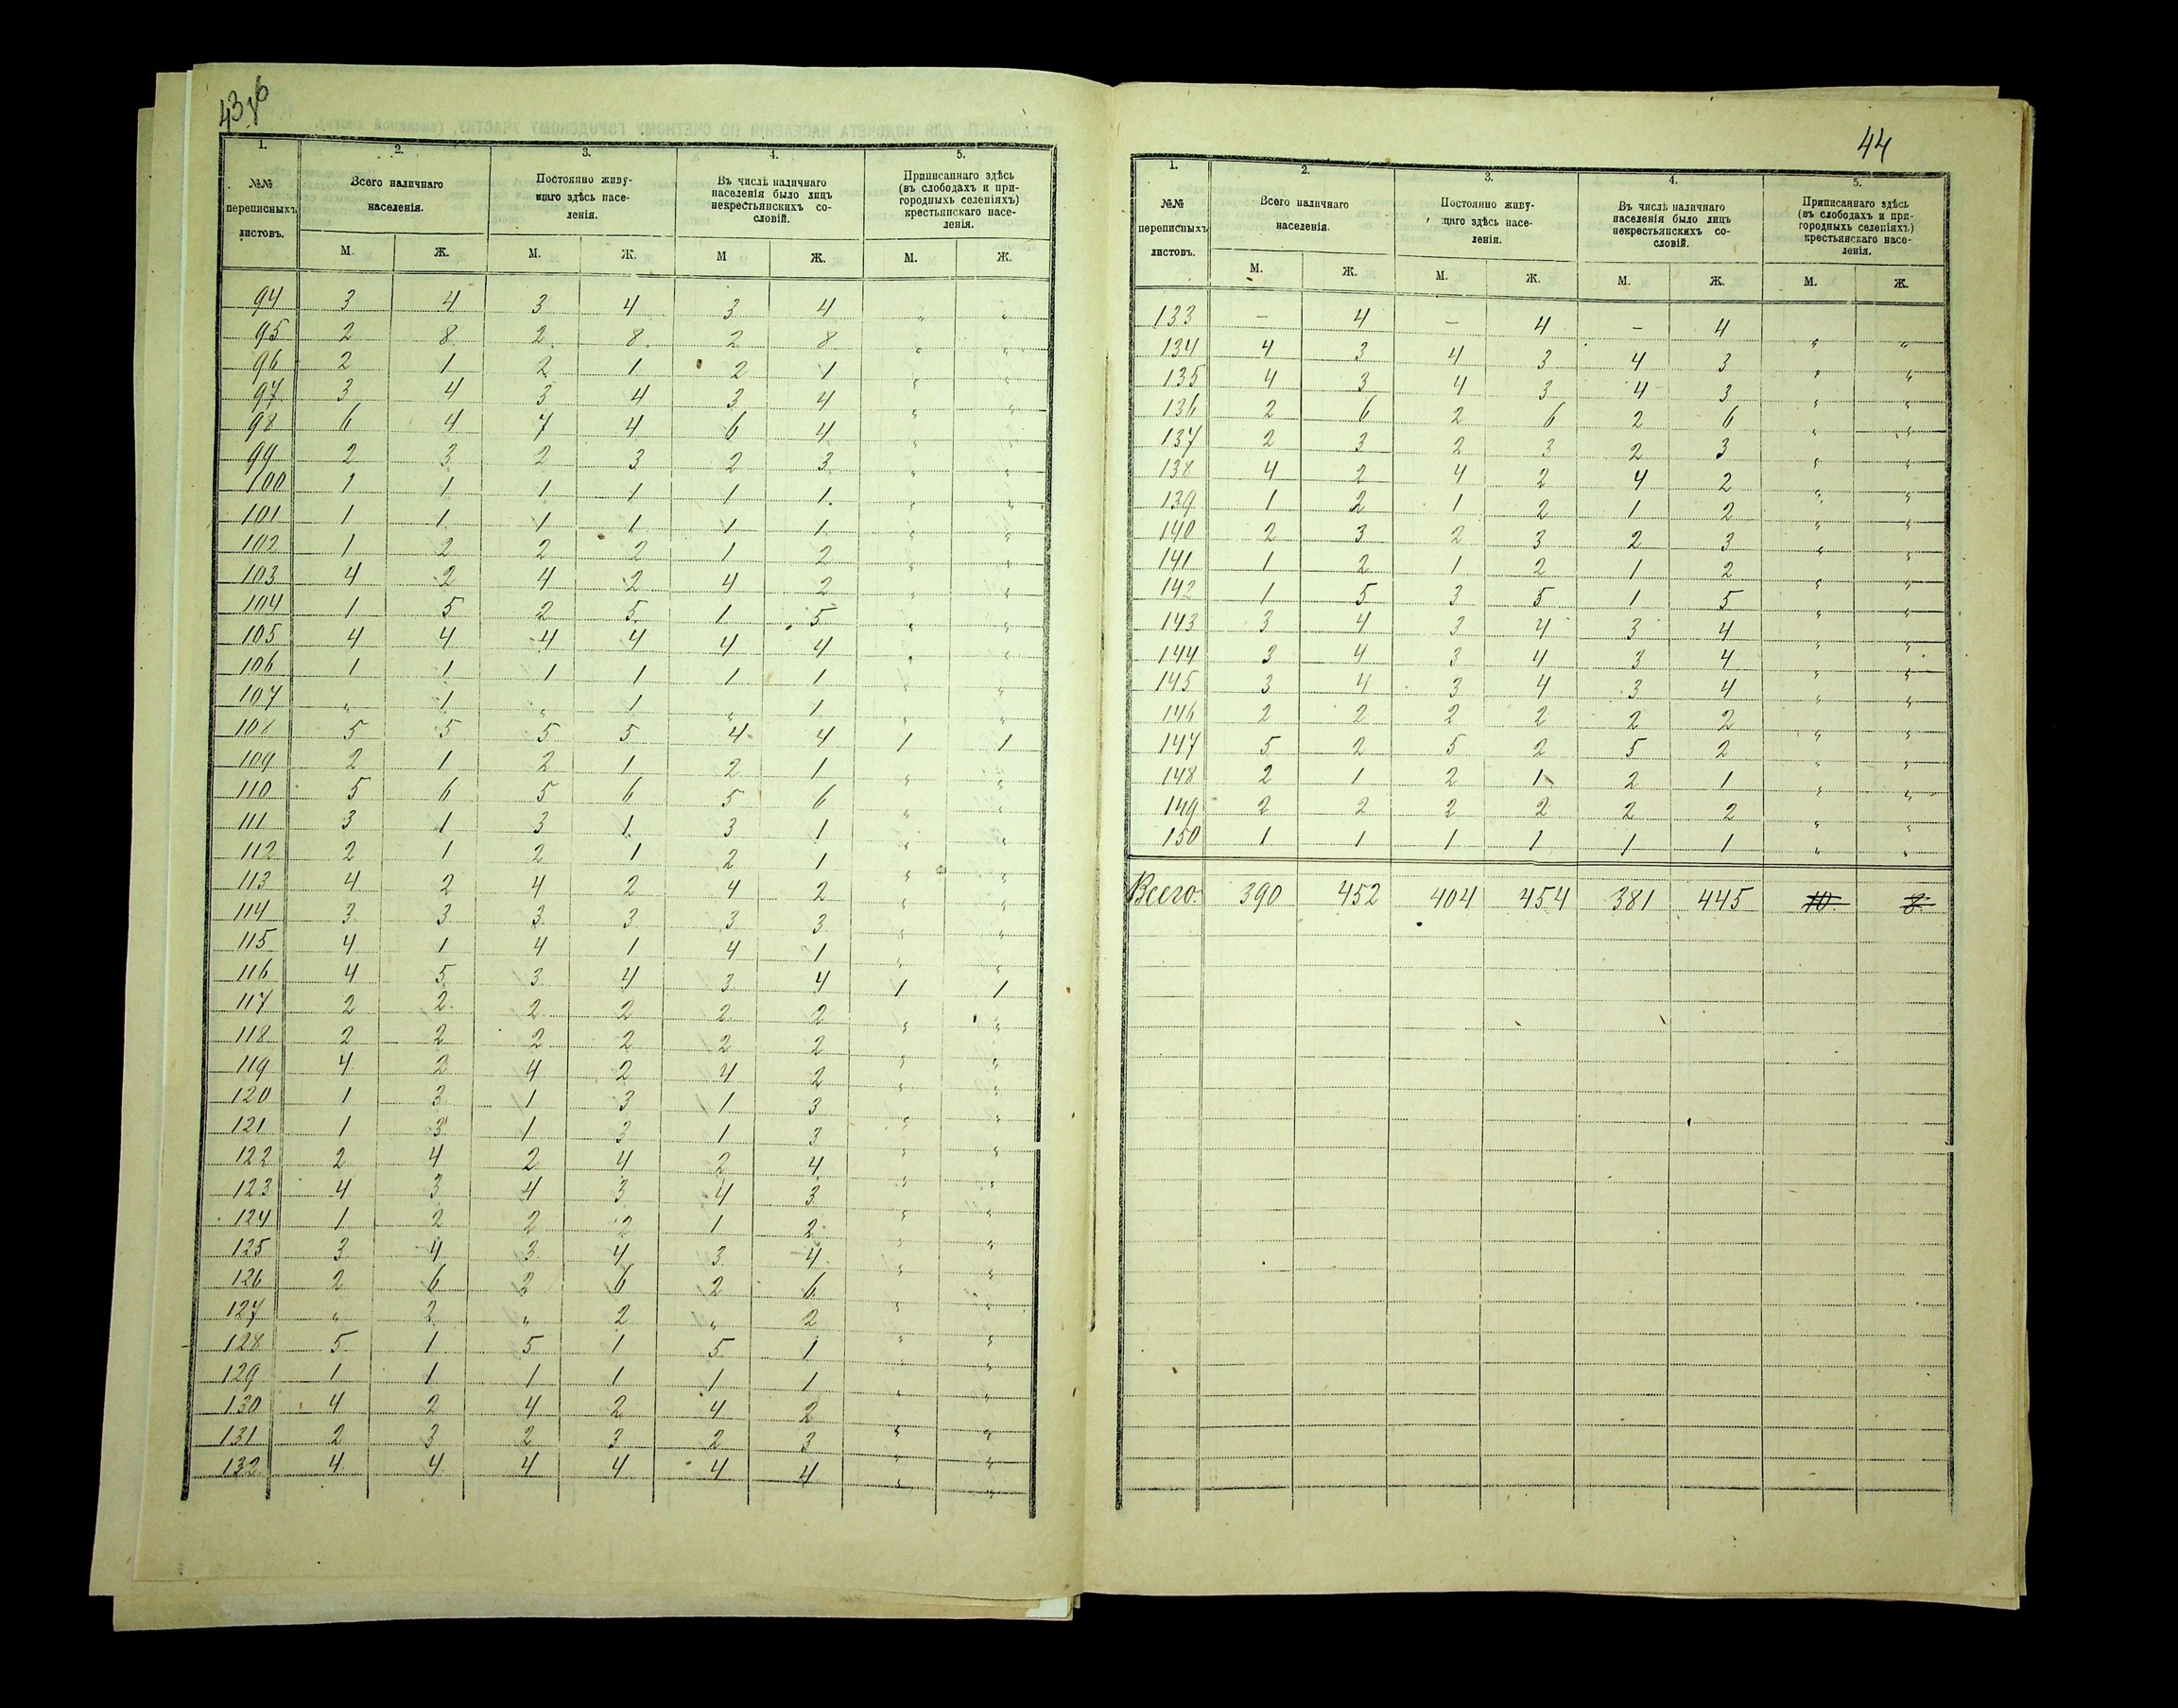 43об
1. 2. 3. 4. 5.
№№ переписныхъ листовъ. Всего наличнаго населенія. Постоянно живущаго здѣсь населенія. Въ числѣ наличнаго населенія было лицъ некрестьянскихъ сословій. Приписаннаго здѣсь (въ слободахъ и пригородныхъ селеніяхъ) крестьянскаго населенія.
М. Ж. М. Ж. М Ж. М. Ж.
94 3 4 3 4 3 4 „ „
95 2 8 2 8 2 8 „ „
96 2 1 2 1 2 1 „ „
97 3 4 3 4 3 4 „ „
98 6 4 7 4 6 4 „ „
99 2 3 2 3 2 3 „ „
100 1 1 1 1 1 1 „ „
101 1 1 1 1 1 1 „ „
102 1 2 2 2 1 2 „ „
103 4 2 4 2 4 2 „ „
104 1 5 2 5 1 5 „ „
105 4 4 4 4 4 4 „ „
106 1 1 1 1 1 1 „ „
107 „ 1 „ 1 „ 1 „ „
108 5 5 5 5 4 4 1 1
109 2 1 2 1 2 1 „ „
110 5 6 5 6 5 6 „ „
111 3 1 3 1 3 1 „ „
112 2 1 2 1 2 1 „ „
113 4 2 4 2 4 2 „ „
114 3 3 3 3 3 3 „ „
115 4 1 4 1 4 1 „ „
116 4 5 3 4 3 4 1 1
117 2 2 2 2 2 2 „ „
118 2 2 2 2 2 2 „ „
119 4 2 4 2 4 2 „ „
120 1 3 1 3 1 3 „ „
121 1 3 1 3 1 3 „ „
122 2 4 2 4 2 4 „ „
123 4 3 4 3 4 3 „ „
124 1 2 2 2 1 2 „ „
125 3 4 3 4 3 4 „ „
126 2 6 2 6 2 6 „ „
127 „ 2 „ 2 „ 2 „ „
128 5 1 5 1 5 1 „ „
129 1 1 1 1 1 1 „ „
130 4 2 4 2 4 2 „ „
131 2 3 2 3 2 3 „ „
132 4 4 4 4 4 4 „ „
44
1. 2. 3. 4. 5.
№№ переписныхъ листовъ. Всего наличнаго населенія. Постоянно живущаго здѣсь населенія. Въ числѣ наличнаго населенія было лицъ некрестьянскихъ сословій. Приписаннаго здѣсь (въ слободахъ и пригородныхъ селеніяхъ) крестьянскаго населенія.
М. Ж. М. Ж. М. Ж. М. Ж.
133 – 4 – 4 – 4 „ „
134 4 3 4 3 4 3 „ „
135 4 3 4 3 4 3 „ „
136 2 6 2 6 2 6 „ „
137 2 3 2 3 2 3 „ „
138 4 2 4 2 4 2 „ „
139 1 2 1 2 1 2 „ „
140 2 3 2 3 2 3 „ „
141 1 2 1 2 1 2 „ „
142 1 5 3 5 1 5 „ „
143 3 4 3 4 3 4 „ „
144 3 4 3 4 3 4 „ „
145 3 4 3 4 3 4 „ „
146 2 2 2 2 2 2 „ „
147 5 2 5 2 5 2 „ „
148 2 1 2 1 2 1 „ „
149 2 2 2 2 2 2 „ „
150 1 1 1 1 1 1 „ „
Всего: 390 452 404 454 381 445 10 8